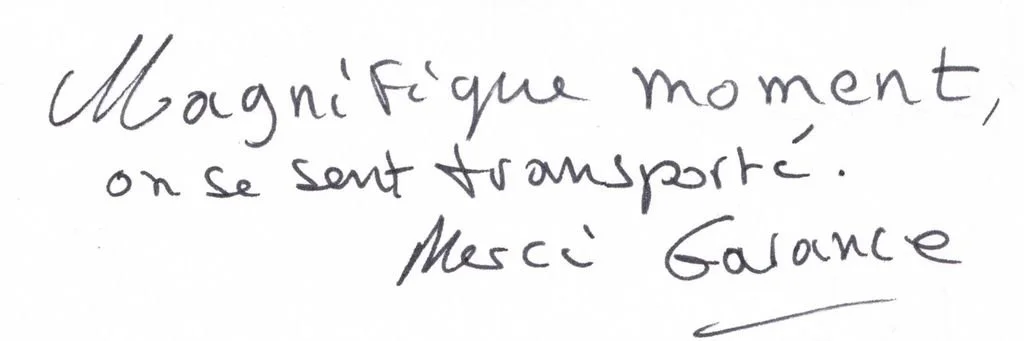 Magnifique moment,
on se sent transporté.
Merci Garance